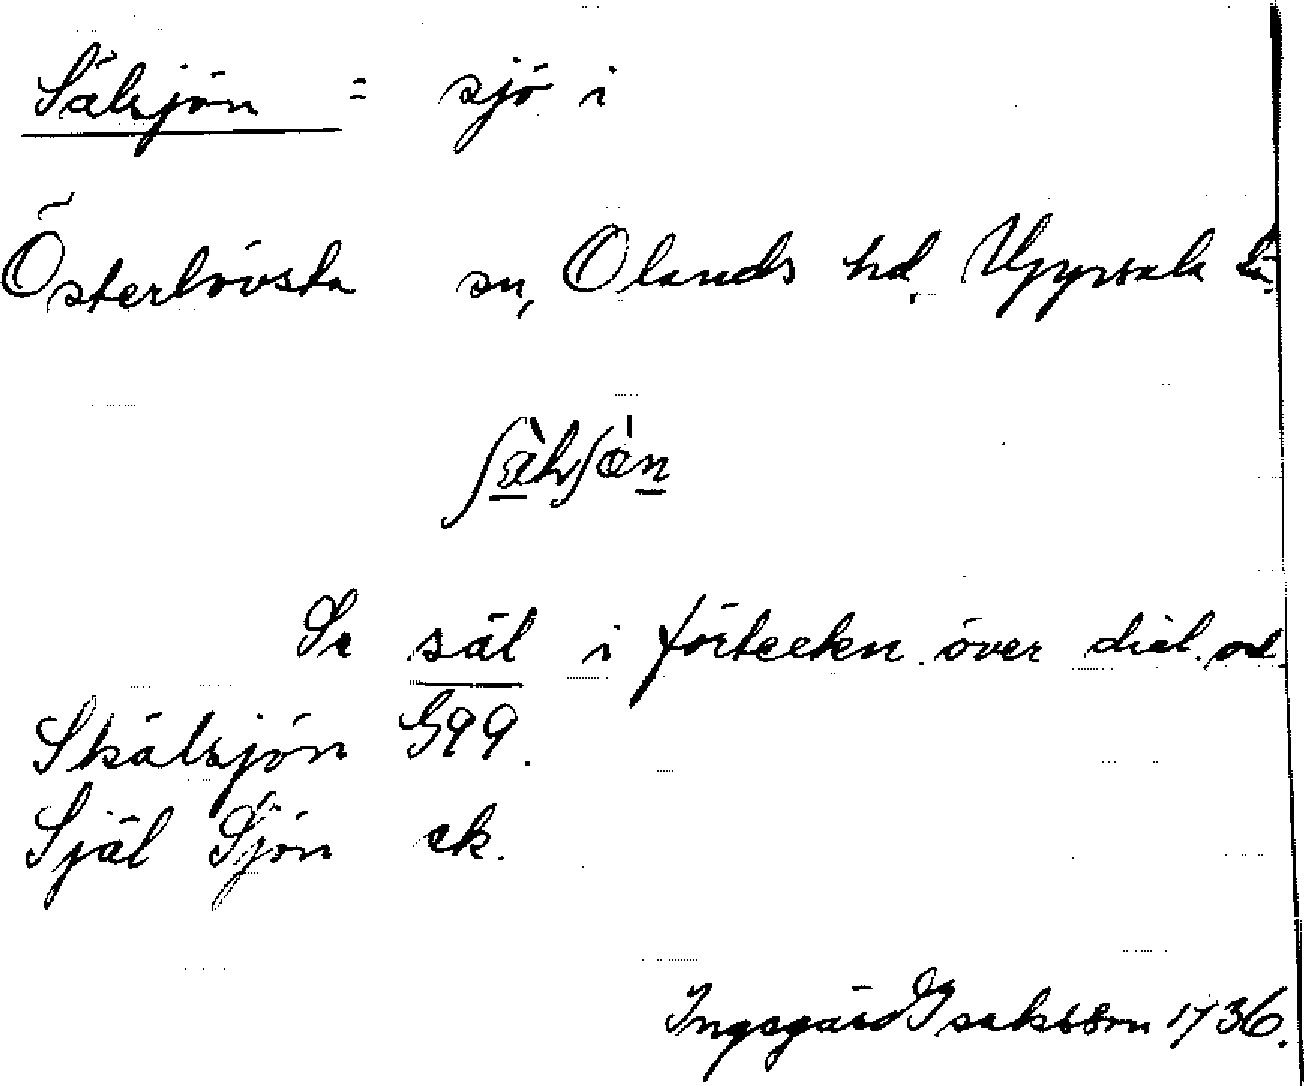 Sälsjön = sjö i
Österlövsta sn, Olands hd. Uppsala län
Se säl i förteckn. över dial. ord.
Skälsjön G99.
Själ Sjön ek.
Ingegärd Isaksson 1736.